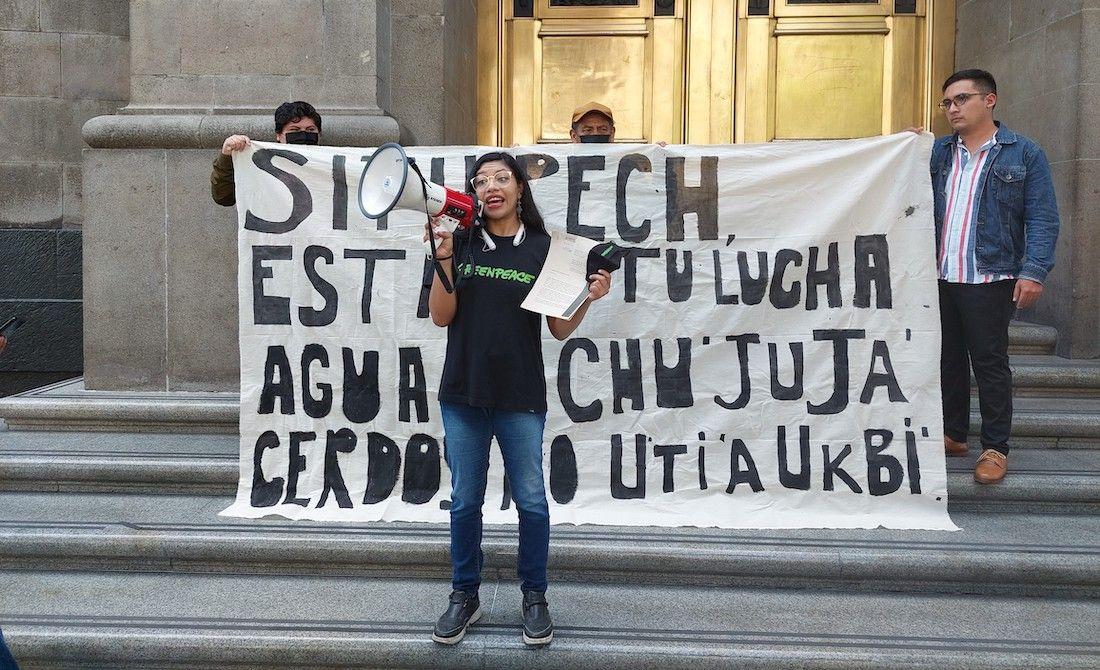 PECH,
TU LUCHA
AGUA CHU'JUJA'
CERDOS NO U'TI'A'UKBI'
GREENPEACE